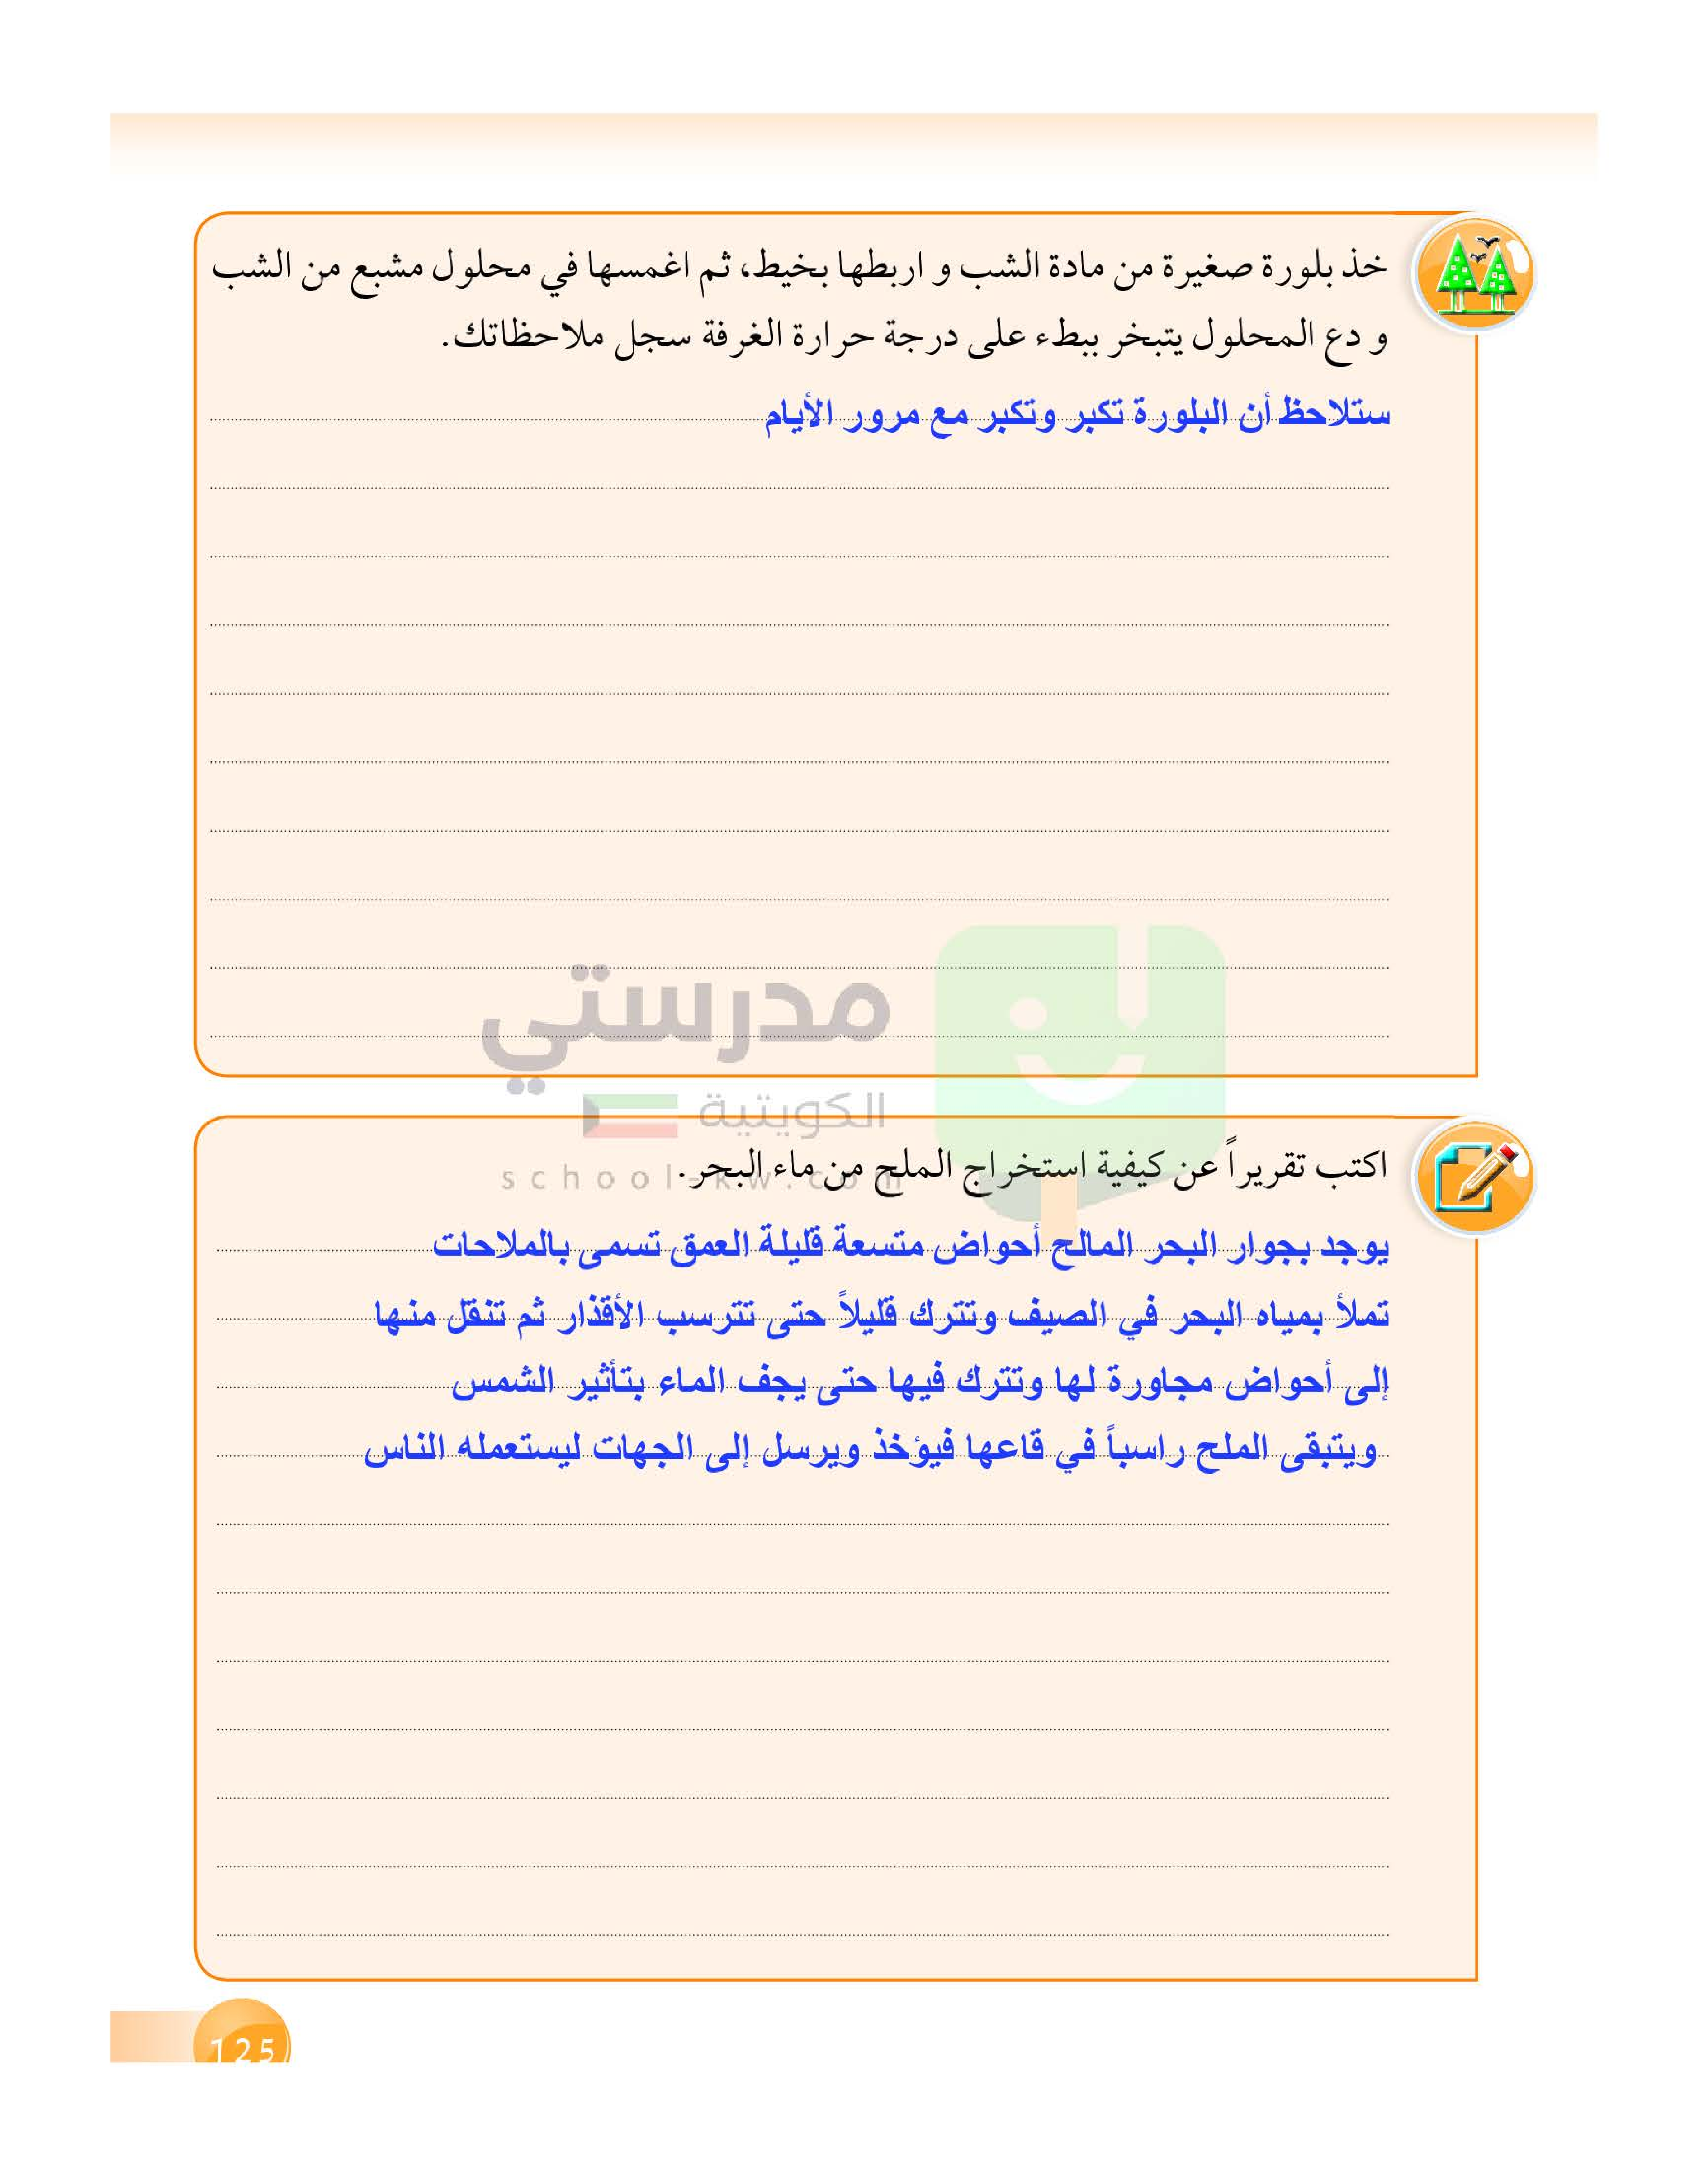 خذ بلورة صغيرة من مادة الشب و اربطها بخيط، ثم اغمسها في محلول مشبع من الشب
و دع المحلول يتبخر ببطء على درجة حرارة الغرفة سجل ملاحظاتك.
ستلاحظ أن البلورة تكبر وتكبر مع مرور الأيام
مدرستي
الكويتية
school-kw.com
اكتب تقريراً عن كيفية استخراج الملح من ماء البحر.
يوجد بجوار البحر المالح أحواض متسعة قليلة العمق تسمى بالملاحات
تملأ بمياه البحر في الصيف وتترك قليلاً حتى تترسب الأقذار ثم تنقل منها
إلى أحواض مجاورة لها وتترك فيها حتى يجف الماء بتأثير الشمس
ويتبقى الملح راسباً في قاعها فيؤخذ ويرسل إلى الجهات ليستعمله الناس
125